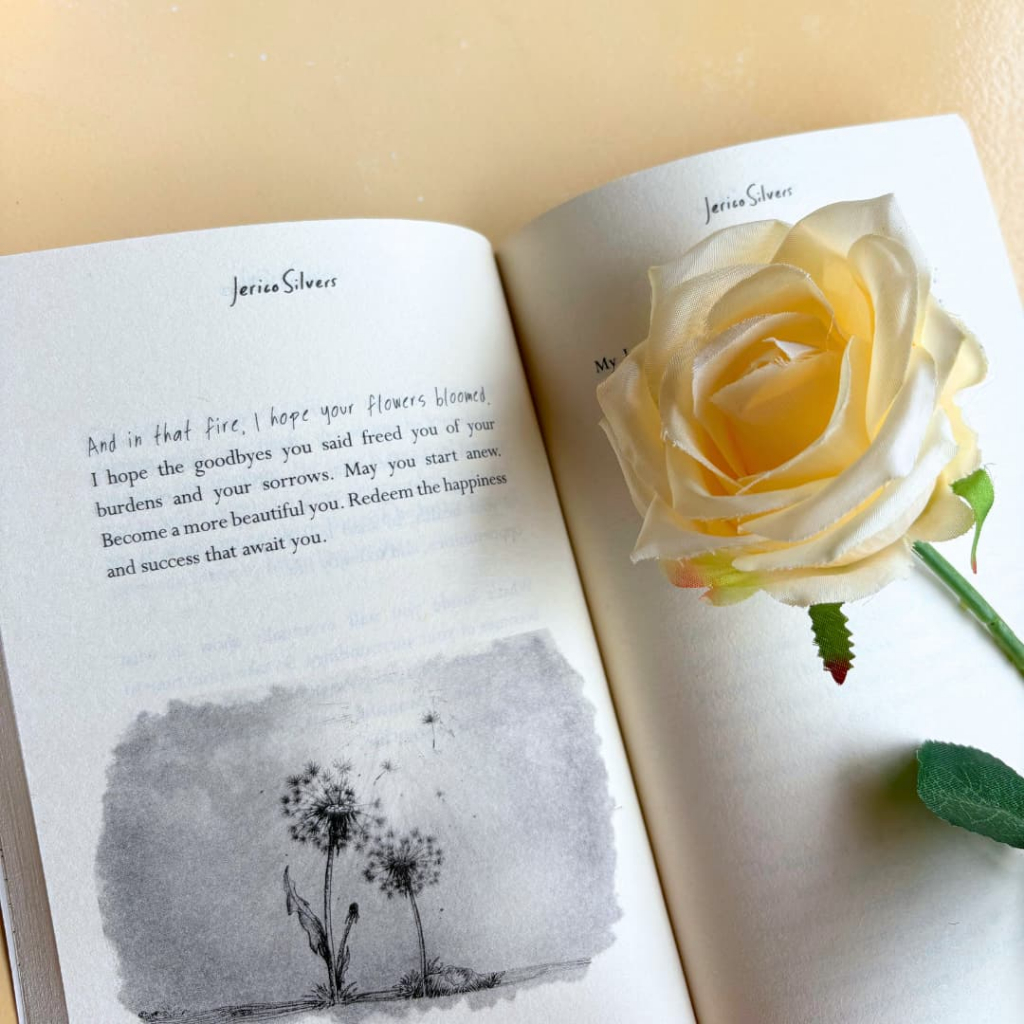 Jerico Silvers
And in that fire, I hope your flowers bloomed.
I hope the goodbyes you said freed you of your
burdens and your sorrows. May you start anew.
Become a more beautiful you. Redeem the happiness
and success that await you.
Jerico Silvers
My